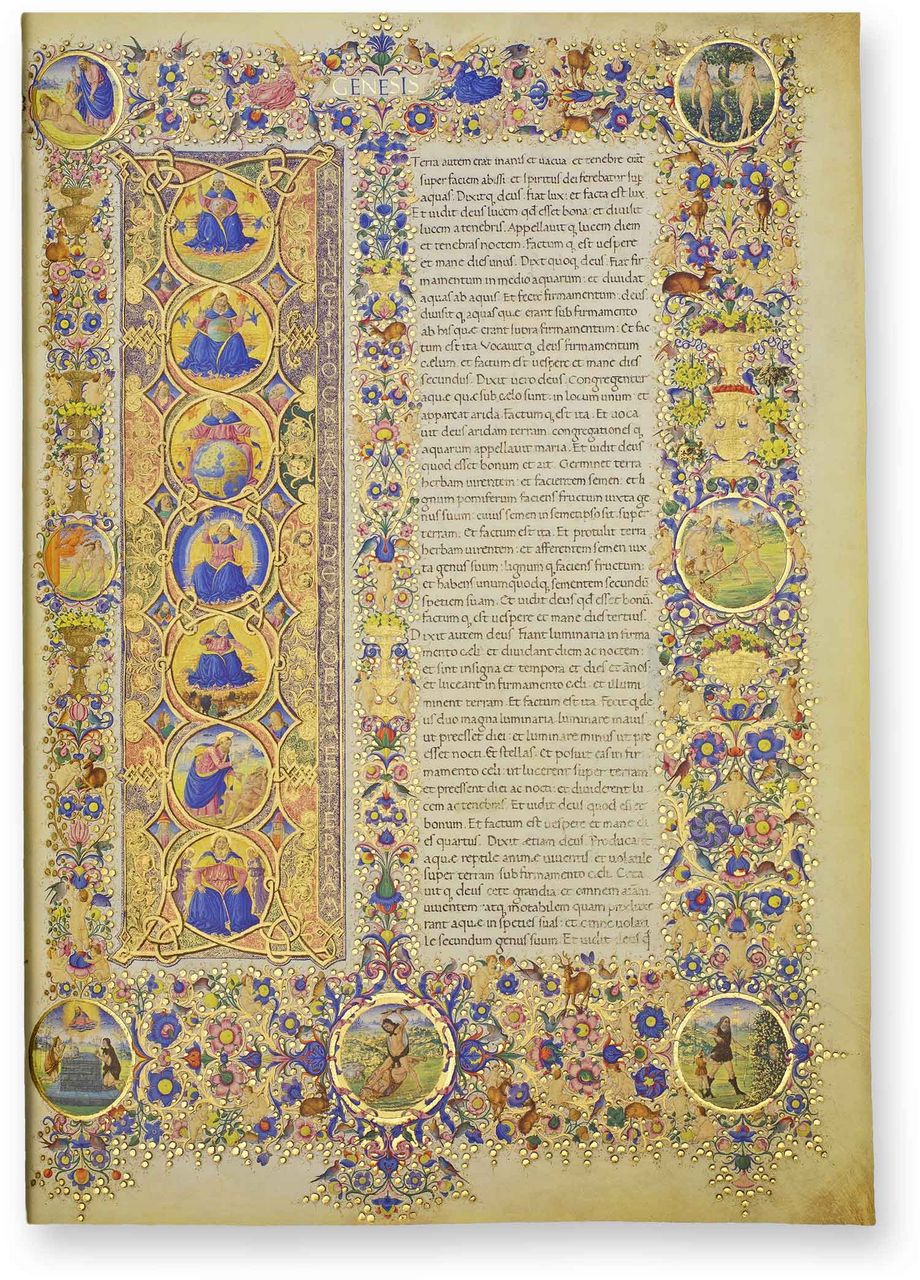 GENESIS
IN PRINCIPIO CREAVIT DEUS CELUM ET TERRA
Terra autem erat inanis et uacua et tenebre erāt
super faciem abissi et spiritus dei ferebatur sup
aquas. Dixitq deus. fiat lux: et facta est lux
Et uidit deus lucem qd esset bona: et diuisit
lucem a tenebris. Appellauit q lucem diem
et tenebras noctem. Factum q est uespere
et mane dies unus. Dixit quoq deus. Fiat fir
mamentum in medio aquarum: et diuidat
aquas ab aquis. Et fecit firmamentum deus.
diuisit q aquas que erant sub firmamento
ab his que erant supra firmamentum: Et fac
tum est ita Vocauit q deus firmamentum
cælum. et factum est uespere et mane dies
secundus. Dixit uero deus. Congregentur
aque que sub celo sunt: in locum unum: et
appareat arida. Factumq est ita. Et uoca
uit deus aridam terram. congregationes q
aquarum appellauit maria. Et uidit deus
quod esset bonum et ait. Germinet terra
herbam uirentem: et facientem semen: et li
gnum pomiferum faciens fructum iuxta ge
nus suum: cuius semen in semetipso sit. super
terram. Et factum est ita. Et protulit terra
herbam uirentem: et afferentem semen iux
ta genus suum: lignum q faciens fructum:
et habens unumquodq sementem secundū
spetiem suam. Et uidit deus qd esset bonū.
Factum q est uespere et mane dies tertius.
Dixit autem deus. Fiant luminaria in firma
mento celi: et diuidant diem ac noctem:
et sint in signa et tempora et dies et ānos:
et luceant in firmamento celi. et illumi
minent terram. Et factum est ita. Fecit q de
us duo magna luminaria. luminare maius
ut preesset diei: et luminare minus ut pre
esset nocti. Et stellas. Et posuit eas in fir
mamento celi: ut lucerent super terram
et preessent diei ac nocti: et diuiderent lu
cem ac tenebras. Et uidit deus quod esset
bonum. Et factum est uespere et mane di
es quartus. Dixit ætiam deus. Producant
aque reptile anime uiuentis et uolatile
super terram sub firmamento celi. Crea
uit q deus cete grandia: et omnem aīam
uiuentem: atq motabilem quam produxe
rant aque in species suas: et omne volati
le secundum genus suum. Et uidit deus q